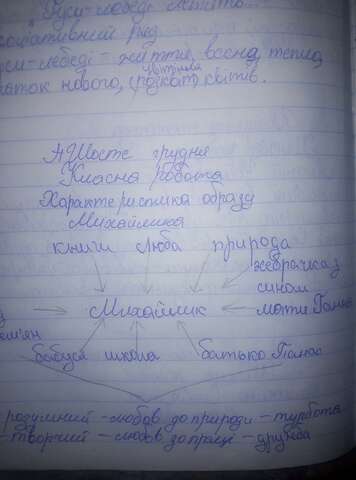 "Гуси-лебеді летять...
ряд
-лебеді - життя, весна, тепло,
нового, світів.
Шосте грудня
Класна робота
Характеристика образу
Михайлика
книги люба природа
жебрачка з
сином
Михайлик
мати
бабуся школа батько
розумний - любов до природи - турбота
творчий - любов до праці - дружба